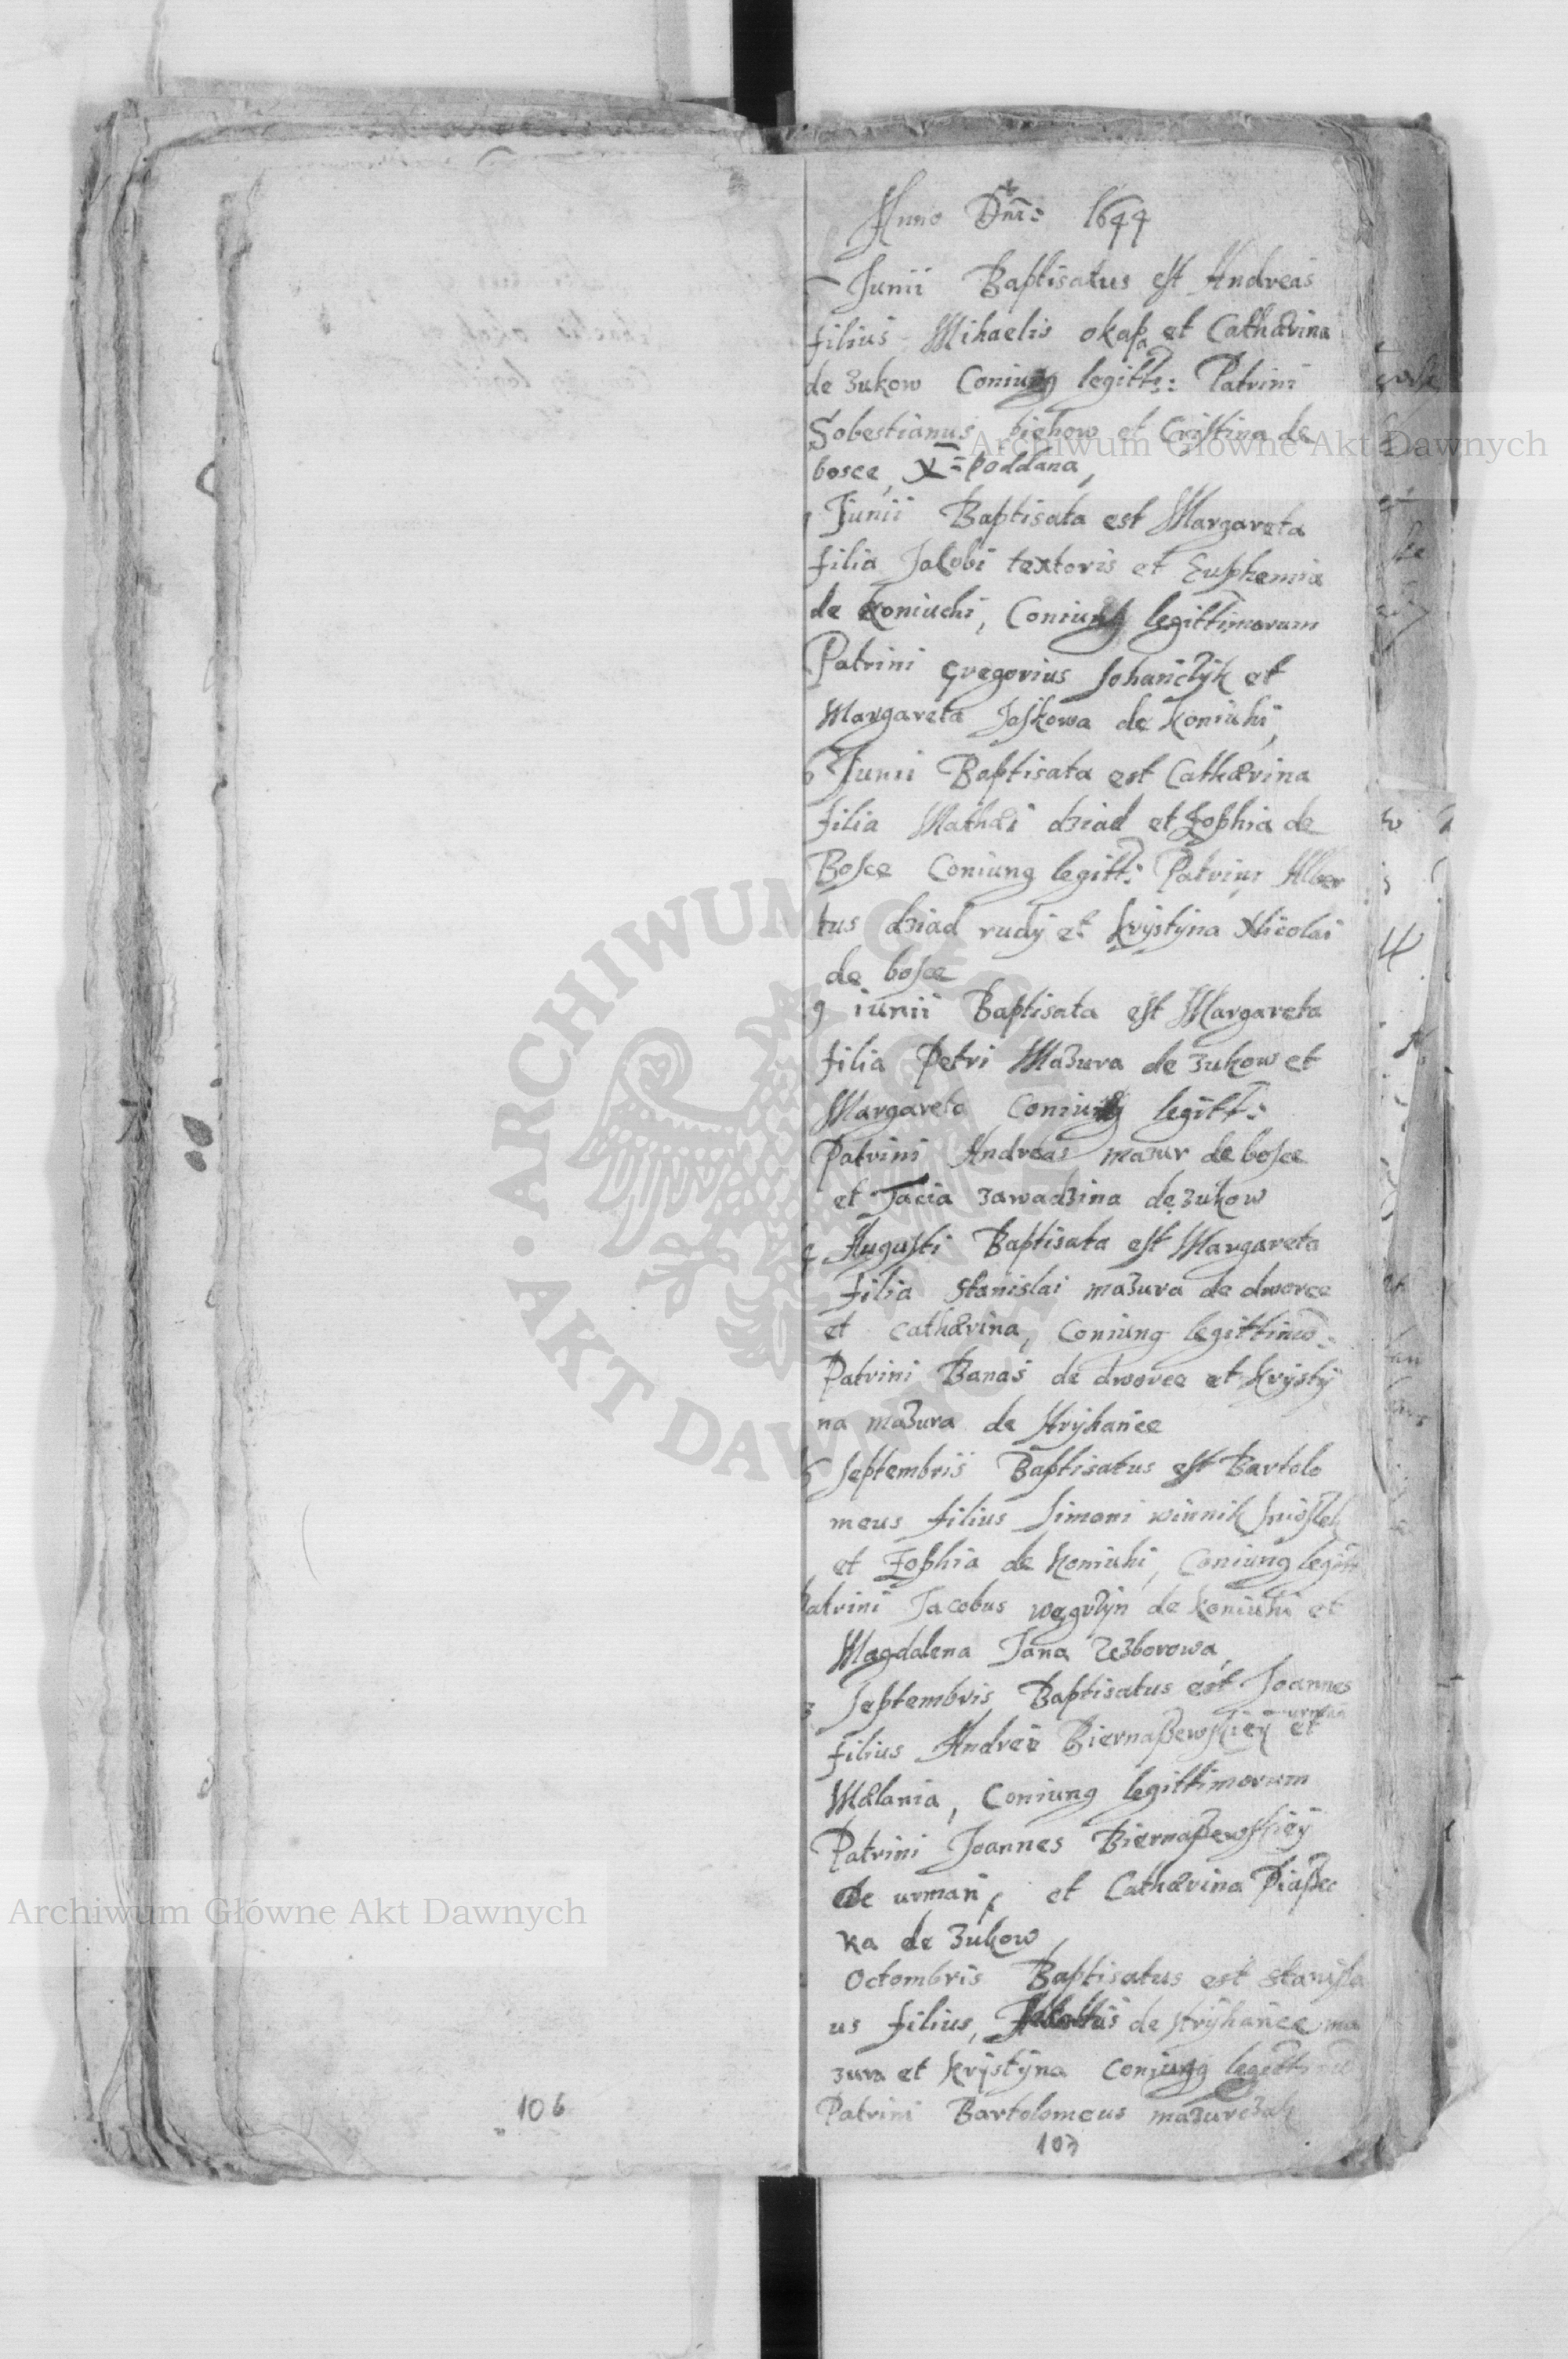 Anno Dnī: 1644
Junii Baptisatus est Andreas
filius Mihaelis okaſa et Cathærina
de zukow Coniung legitt: Patrini
Sobestianus piehow et Cristina de
bosce, X= poddana,
Junii Baptisata est Margareta
filia Jacobi textoris et Eusphemia
de Koniuchi, Coniung legittimorum
Patrini Gregorius Johańczÿk et
Margareta Jaſkowa de Koniuhi,
6 Junii Baptisata est Cathærina
filia Mathæi dziad et Zophia de
Bosce Coniung legitt: Patrini Alber
tus dziad rudÿ et Krÿstÿna Nicolai
de bosce
9 iunii Baptisata est Margareta
filia Petri Mazura de zukow et
Margareta Coniung legitt:
Patrini Andreas mazur de bosce
et Tacia zawadzina de zukow
Augusti Baptisata est Margareta
Filia Stanislai mazura de dworce
et cathærina, Coniung legittimo:
Patrini Banaś de dworce et Krÿstÿ
na mazura de Strÿhańce
Septembris Baptisatus est Bartolo
meus filius Simoni winnik
et Zophia de Koniuhi, Coniung legitt
Patrini Jacobus węgrzÿn de Koniuhi et
Magdalena Jana
3 Septembris Baptisatus est Joannes
urmań
filius Andreę Biernaßewſkieÿ et
Mælania, Coniung legittimorum
Patrini Joannes Biernaßewſkieÿ
de urmań, et Cathærina Piaßec
ka de zukow,
Octombris Baptisatus est Stanisla
us filius, de Strÿhańce ma
zura et Krÿstÿna Coniung
Patrini Bartolomeus mazurczak
106
107
Archiwum Główne Akt Dawnych
Archiwum Główne Akt Dawnych
ARCHIWUM GŁÓWNE · AKT DAWNYCH ·